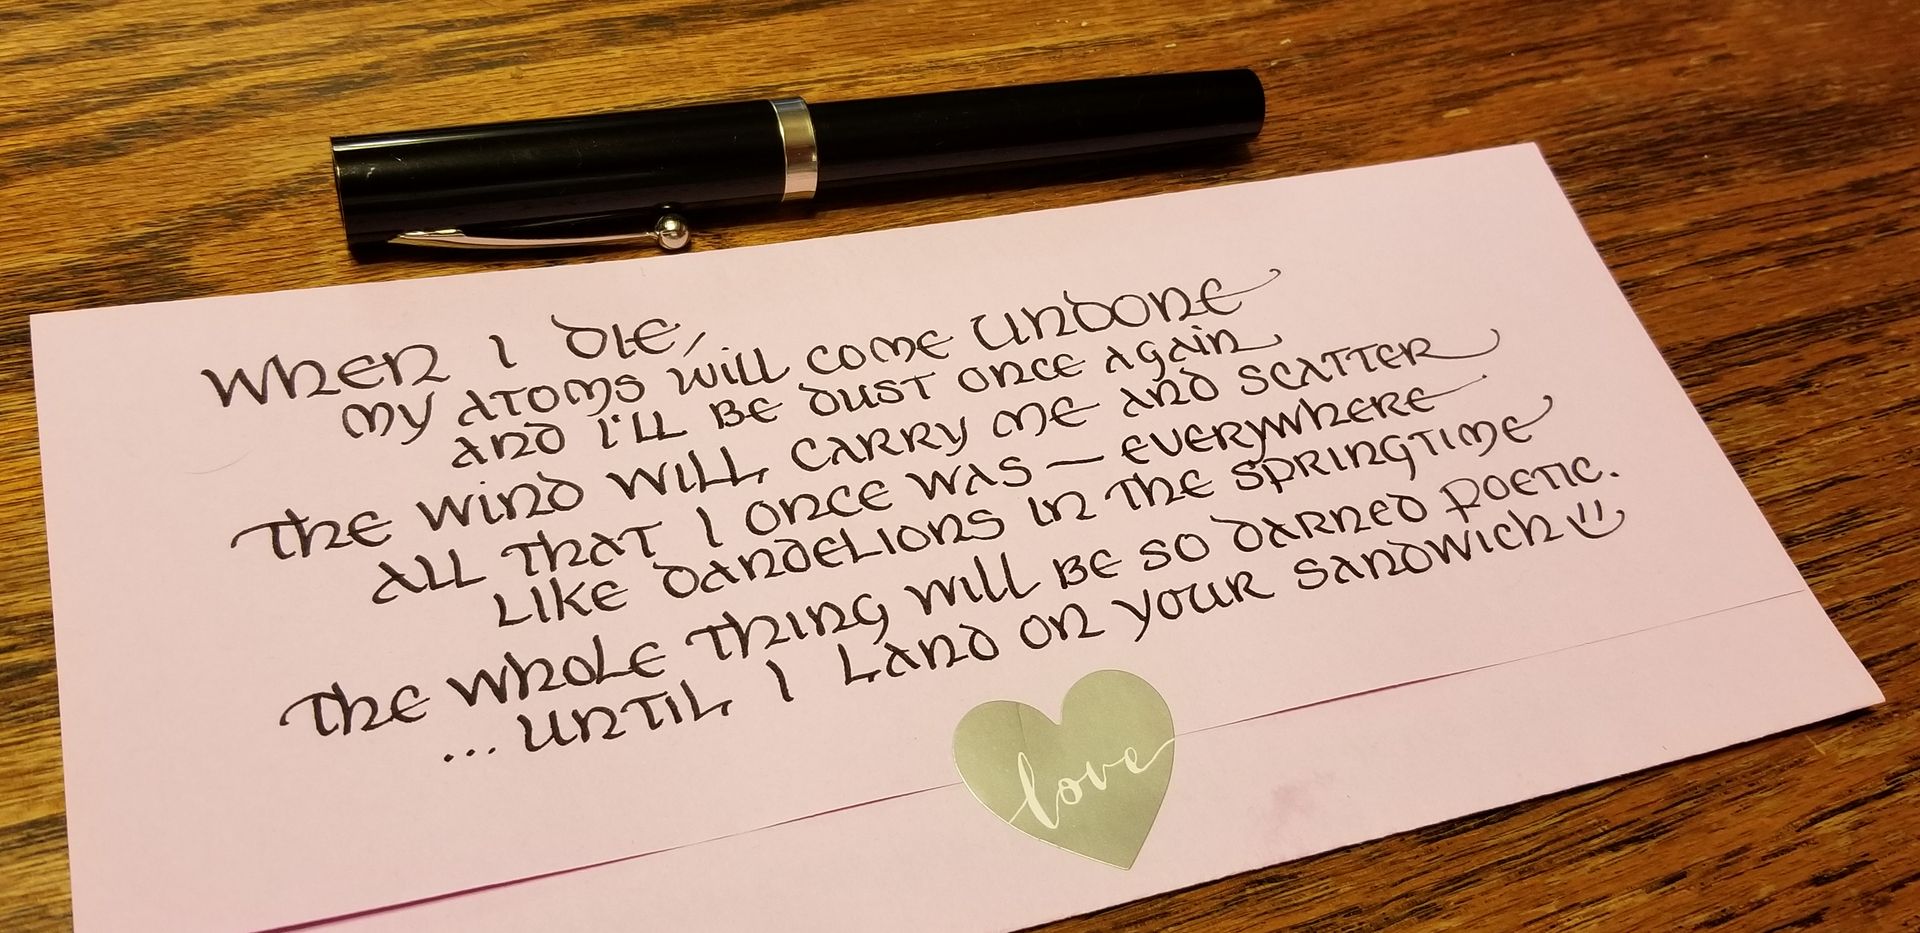 When I die,
my atoms will come undone
and I'll be dust once again
The wind will carry me and scatter
all that I once was — everywhere
like dandelions in the springtime
The whole thing will be so darned poetic.
...until I land on your sandwich
love